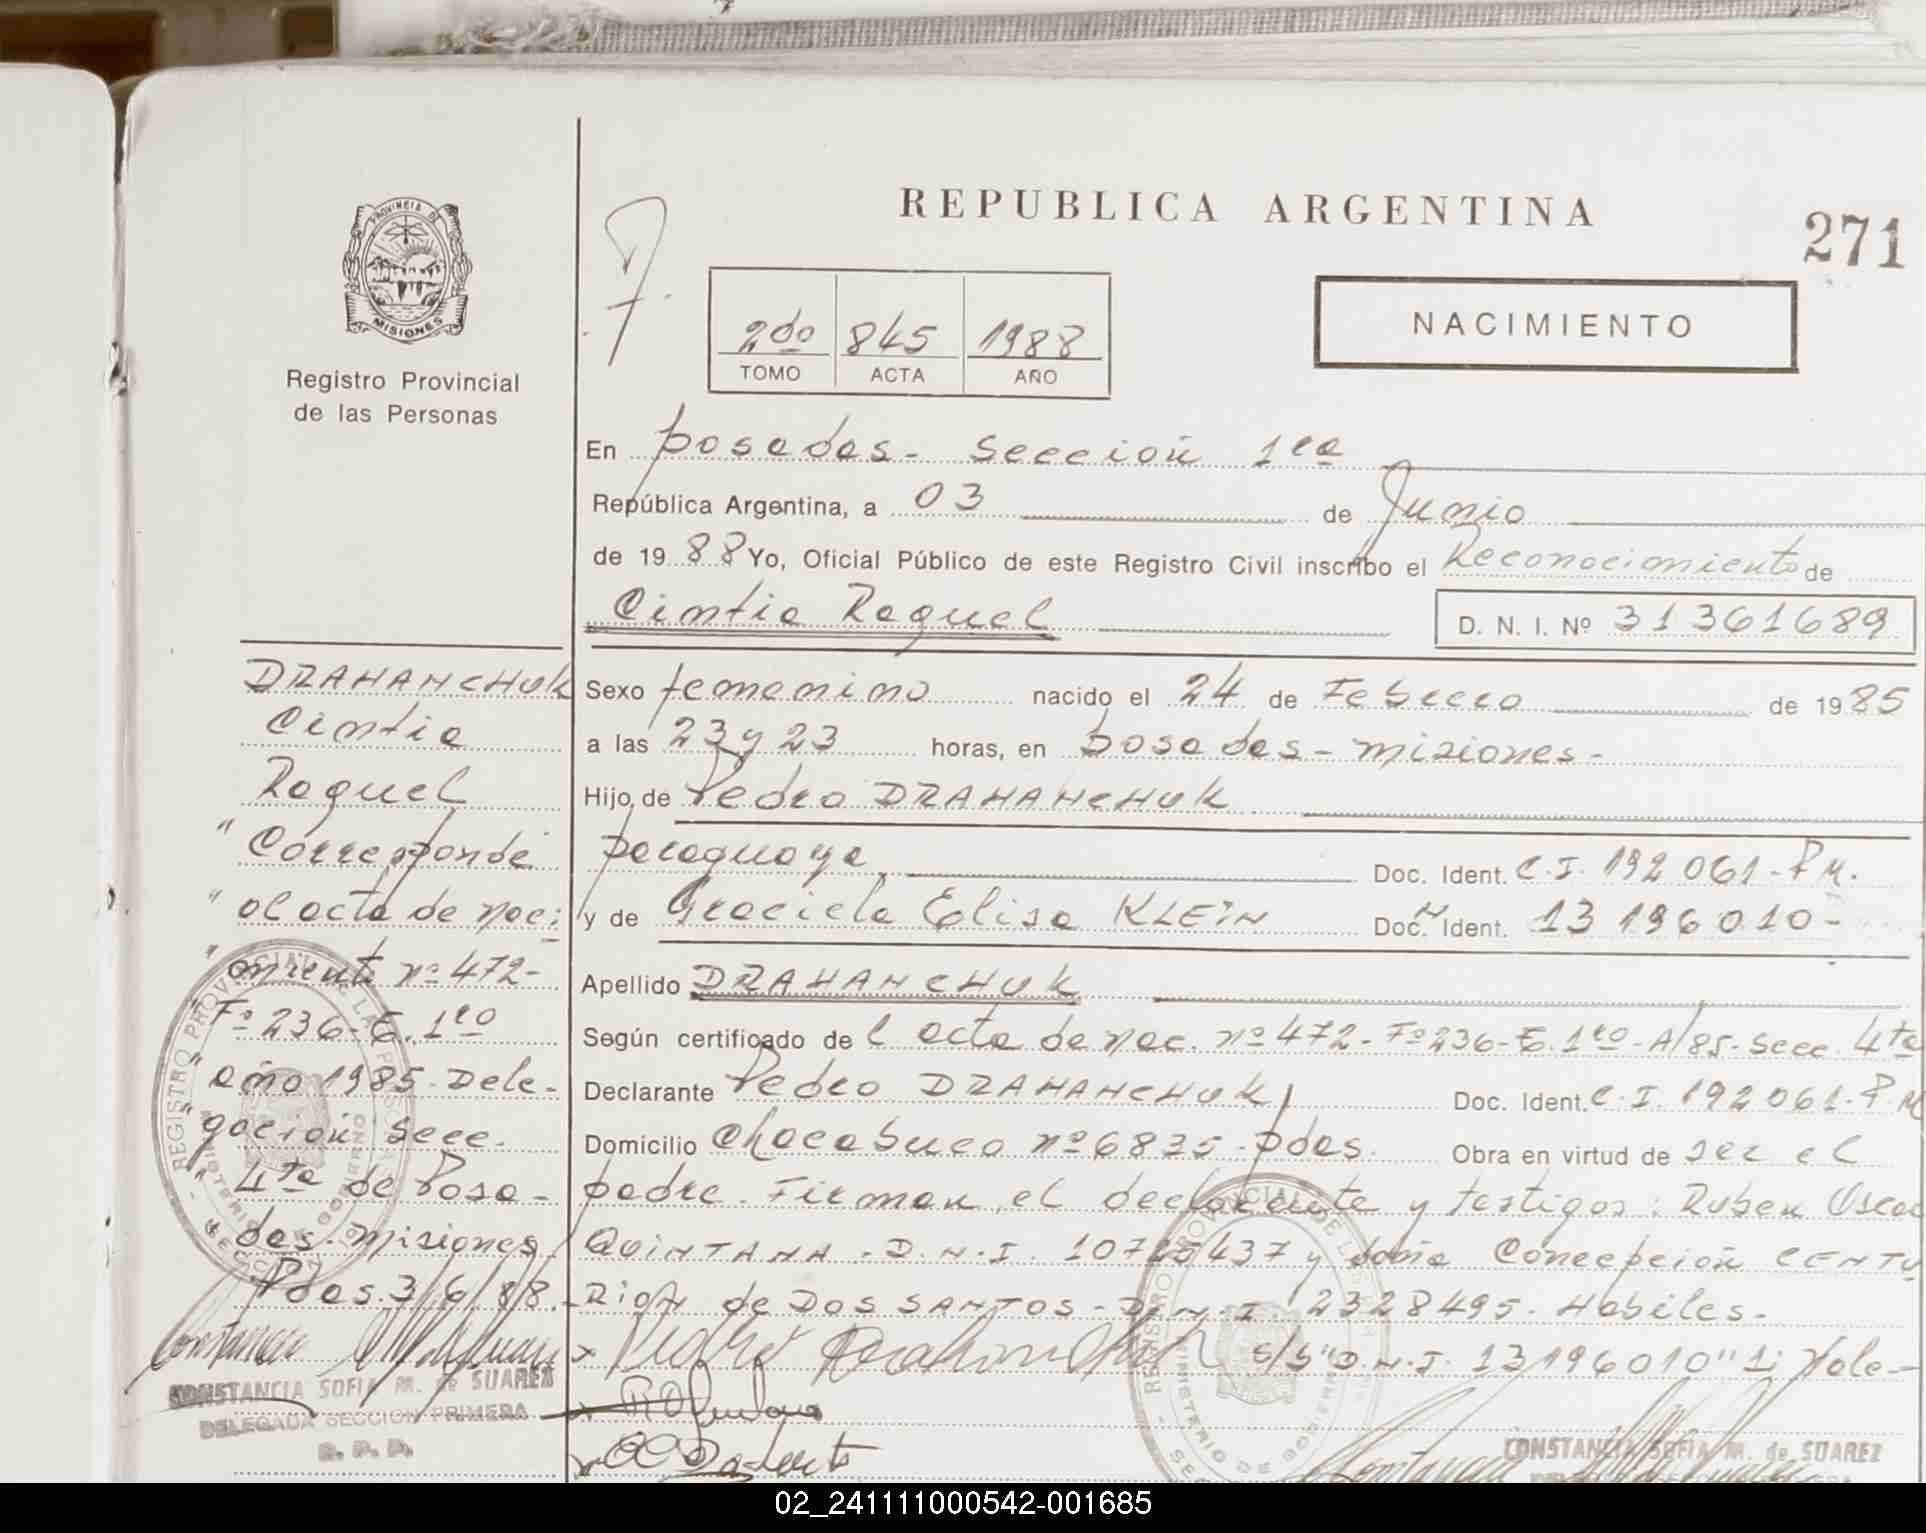 REPUBLICA ARGENTINA
271
PROVINCIA DE
MISIONES
Registro Provincial
de las Personas
2do 845 1988
TOMO ACTA AÑO
NACIMIENTO
En Posadas - Sección 1ra
República Argentina, a 03 de Junio
de 1988 Yo, Oficial Público de este Registro Civil inscribo el Reconocimiento de
Cintia Raquel
D. N. I. Nº 31361689
Sexo femenino nacido el 24 de Febrero de 1985
a las 23 y 23 horas, en Posadas - Misiones -
Hijo de Pedro DRAHANCHUK
paraguaya Doc. Ident. C.I. 192061 - P M.
y de Graciela Elisa KLEIN Doc. Ident. 13196010 -
Apellido DRAHANCHUK
Según certificado del acta de nac. nº 472 - Fº 236 - T. 1ro - A/85 - Secc. 4ta
Declarante Pedro DRAHANCHUK Doc. Ident. C.I. 192061 - P M
Domicilio Chacabuco nº 6835 - Pdas. Obra en virtud de ser el
padre. Firman, el declarante y testigos: Ruben Oscar
QUINTANA - D.N.I. 10725437 y doña Concepción CENTU
RION de DOS SANTOS - D.N.I. 2328495. Habiles -
Pedro Drahanchuk S/S "D.N.I. 13196010" si Vale -
CONSTANCIA SOFIA M. de SUAREZ
DRAHANCHUK
Cintia
Raquel
" Corresponde
" al acta de naci
" miento nº 472 -
" Fº 236 - T. 1ro
" año 1985 - Dele -
" gación Secc.
" 4ta de Posa -
das - Misiones.
Pdas. 3/6/88.
CONSTANCIA SOFIA M. de SUAREZ
DELEGADA SECCION PRIMERA
R. P. P.
02_241111000542-001685